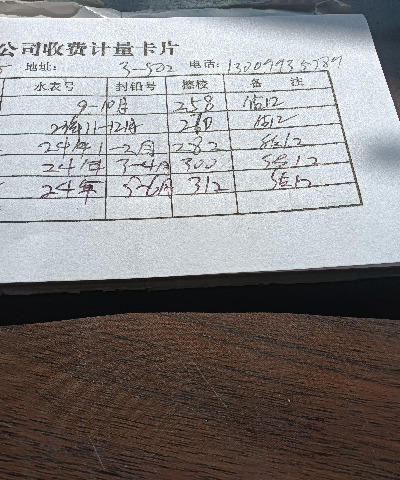 公司收费计量卡片
地址: 3-502 电话: 13009935789
水表号 封铅号 擦校 备 注
9-10月 258 估12
23年11-12月 270 估12
24年1-2月 282 估12
24年 3-4月 300 估12
24年 5-6月 312 估12